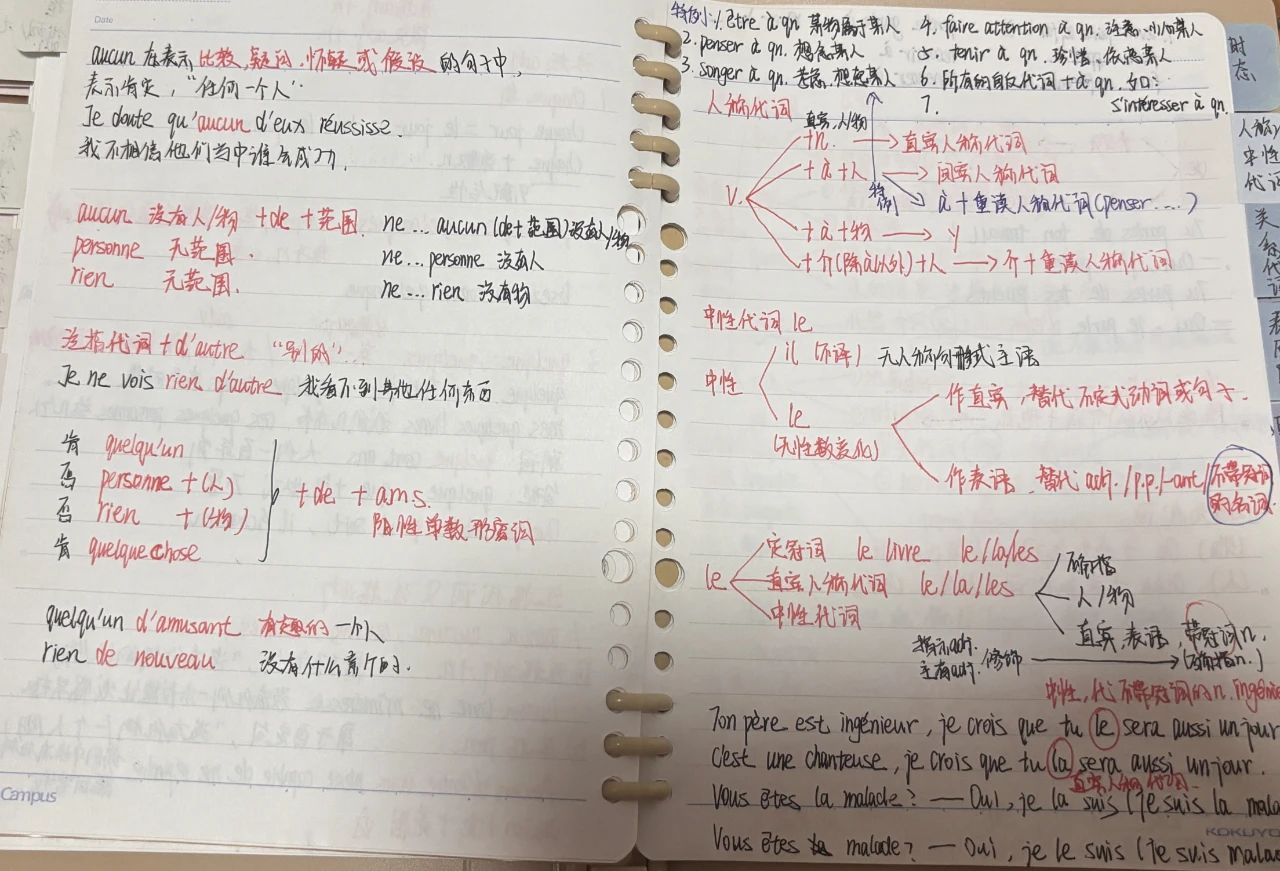 Date
aucun 在表示比较、疑问、怀疑或假设的句子中，
表示肯定，"任何一个人"
Je doute qu'aucun d'eux réussisse.
我不相信他们当中谁会成功.
aucun 没有人/物 +de +范围 ne... aucun (de+范围)没有人/物
personne 无范围. ne... personne 没有人
rien 无范围. ne... rien 没有物
泛指代词 + d'autre "别的"...
Je ne vois rien d'autre 我看不到其他任何东西
肯 quelqu'un
否 personne +(人)
否 rien +(物)
肯 quelque chose
+de + a.m.s.
阳性单数形容词
quelqu'un d'amusant 有趣的一个人
rien de nouveau 没有什么新的.
Campus
特例小: 1. être à qn. 某物属于某人 4. faire attention à qn. 注意、小心某人
2. penser à qn. 想念某人 5. tenir à qn. 珍惜、依恋某人
3. songer à qn. 考虑、想念某人 6. 所有的自反代词 + à qn. 如:
7. s'intéresser à qn.
人称代词
直宾、人/物
+n. → 直宾人称代词
+ à +人 → 间宾人称代词
V.
特例 à + 重读人称代词 (penser ....)
+ à +物 → y
+ 介(除à以外) +人 → 介 + 重读人称代词
中性代词 le
il (不译) 无人称句形式主语
中性
le
(无性数变化)
作直宾，替代不定式动词或句子.
作表语，替代 adj. / p.p. / -ant / 不带冠词的名词.
定冠词 le livre le/la/les
le 直宾人称代词 le/la/les
中性代词
确指
人/物
直宾、表语 带冠词n.
(确指n.)
指示adj.
主有adj. 修饰
中性，代不带冠词的n. ingénie
Ton père est ingénieur, je crois que tu le sera aussi un jour
C'est une chanteuse, je crois que tu la sera aussi un jour.
直宾人称代词
Vous êtes la malade? — Oui, je la suis (Je suis la mala
KOKUYO
Vous êtes malade? — Oui, je le suis (Je suis Malad
时态
人称、中性代词
关系代词